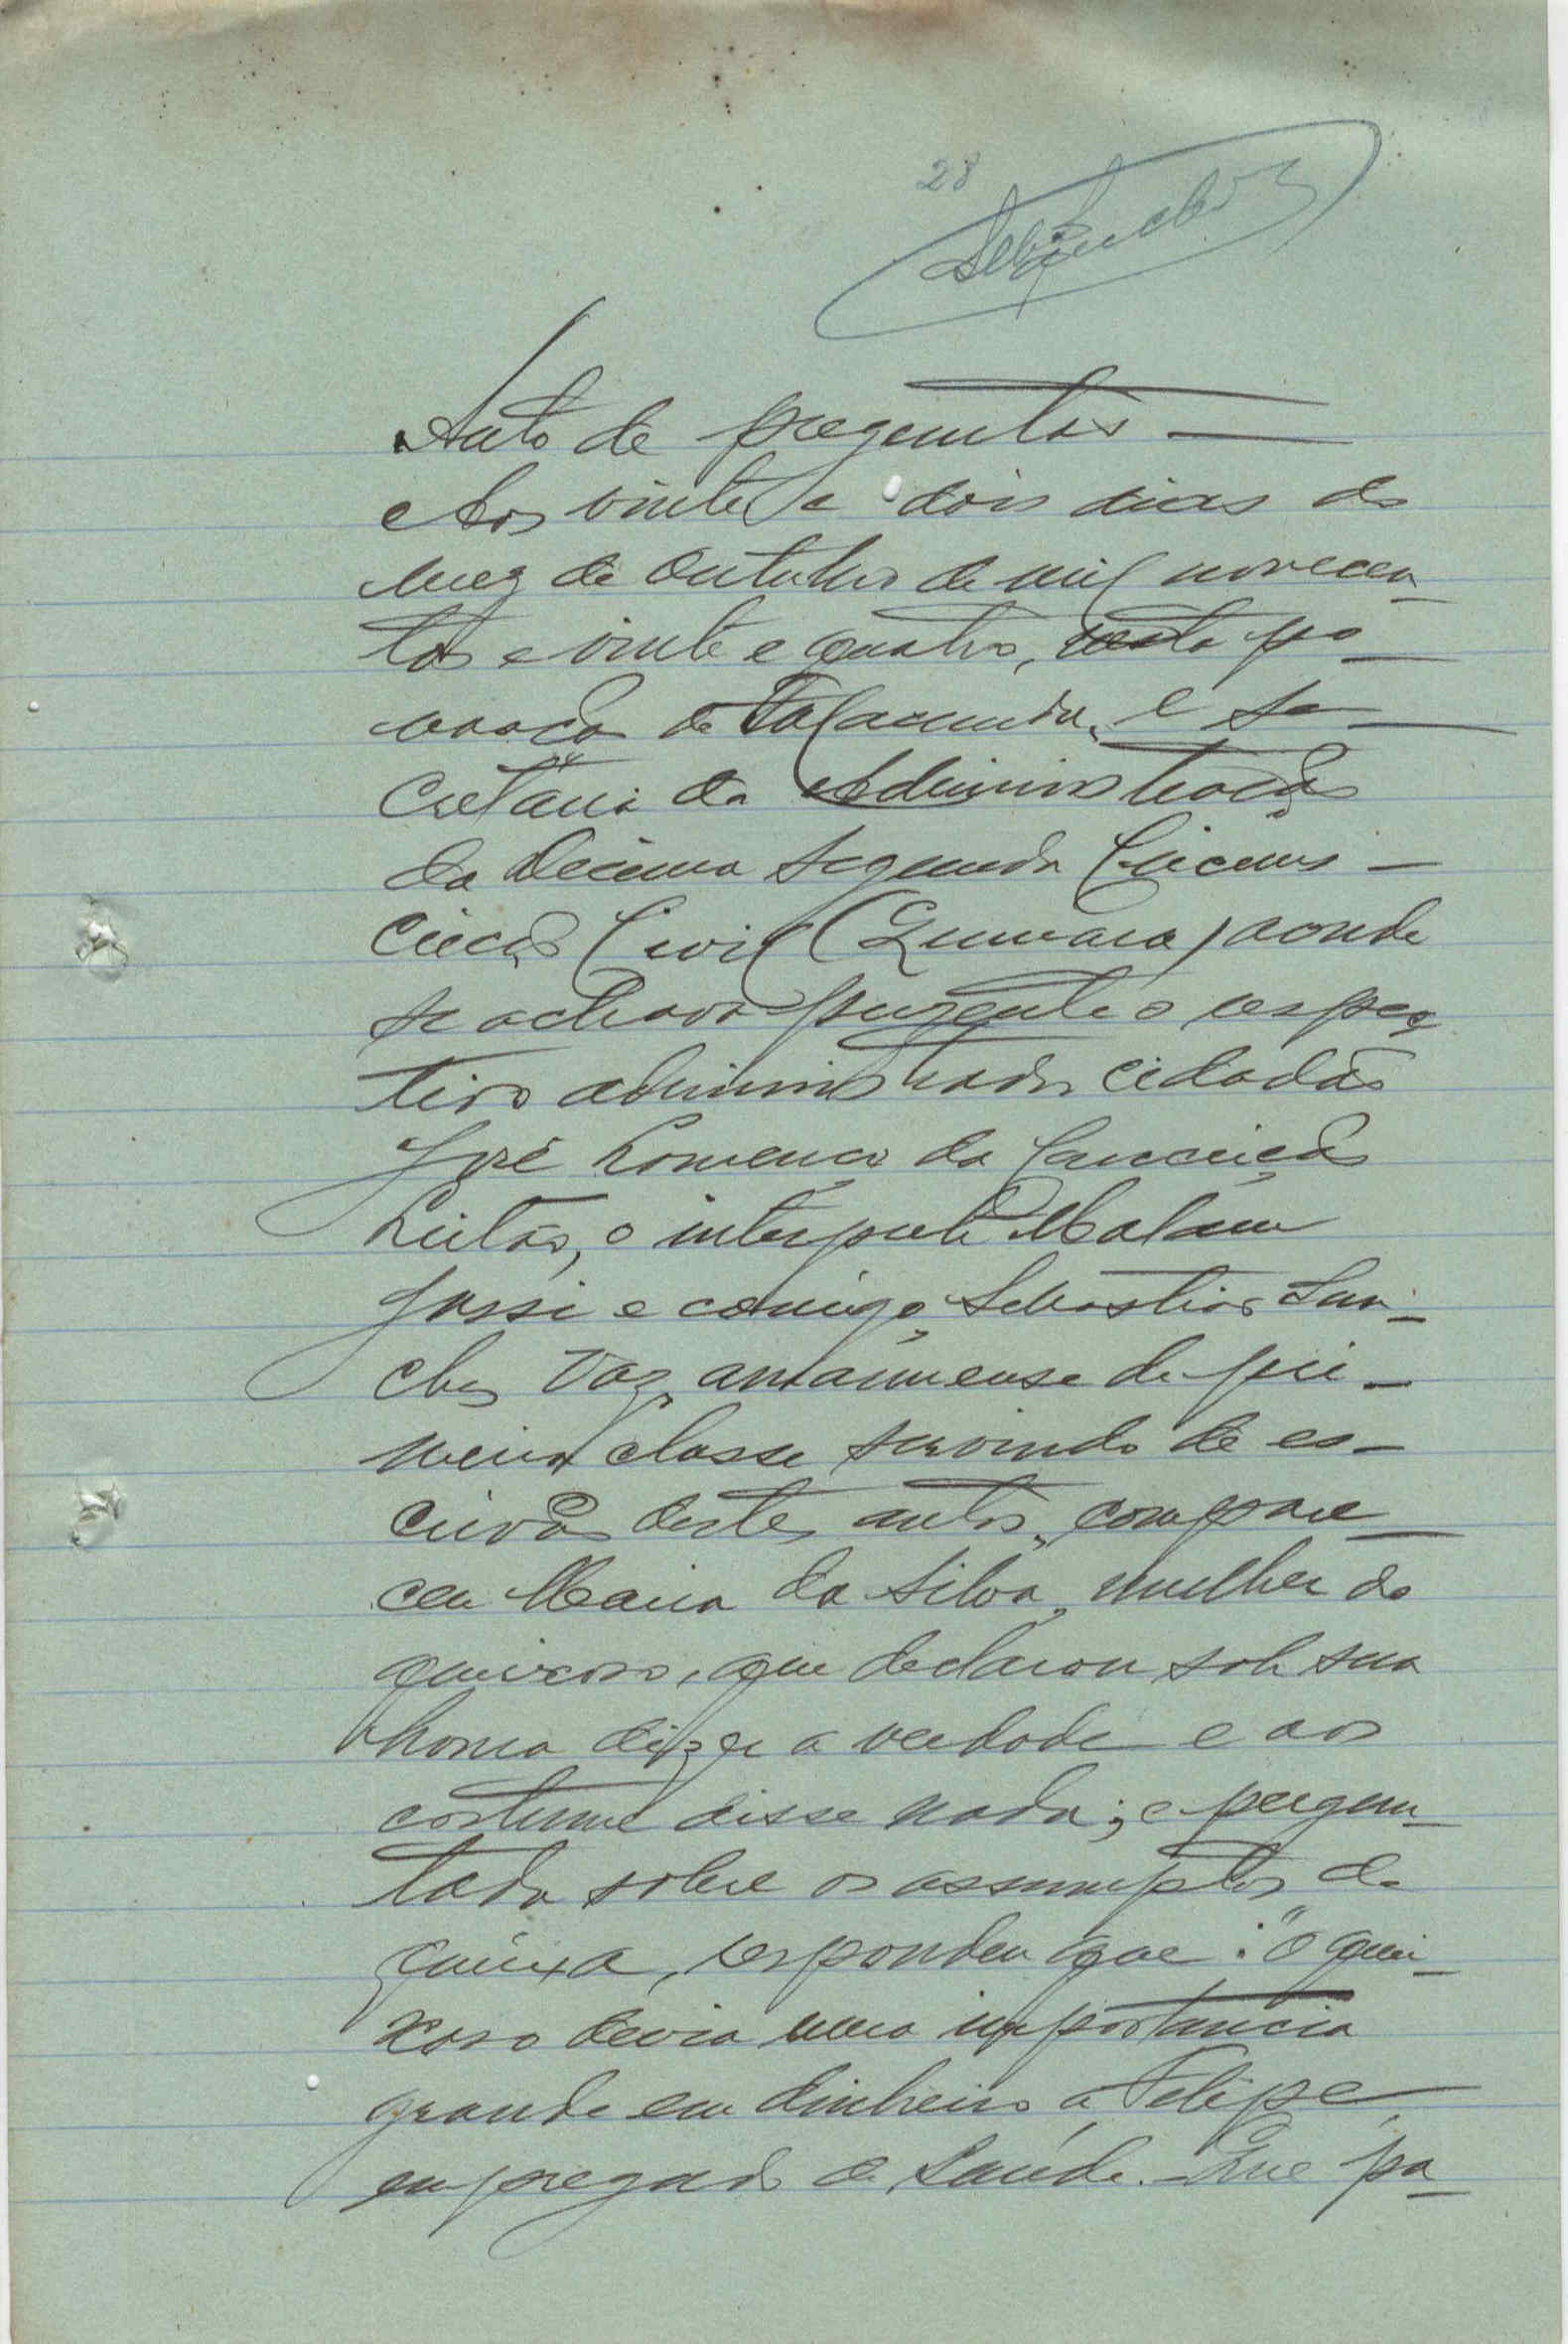 28
Auto de preguntas
Aos vinte e dois dias do
mez de Outubro de mil novecen-
tos e vinte e quatro, nesta po-
voação de e se-
cretaria da Administração
da Decima Segunda Circuns-
crição Civil (Quinara) aonde
se achava prezente o respec-
tivo administrador cidadão
José Lourenço da Conceição
Leitão, o interprete Malam
Jassi e comigo, Sebastião San-
ches Vaz, amanuense de pri-
meira classe servindo de es-
crivão destes autos, compare-
ceu Maria da Silva, mulher do
queixoso, que declarou sob sua
honra dizer a verdade e aos
costume disse nada; e pergun-
tada sobre os assumptos da
queixa, respondeu que: "o quei-
xoso devia uma importancia
grande em dinheiro a Felipe,
empregado da Saúde. Que pa-